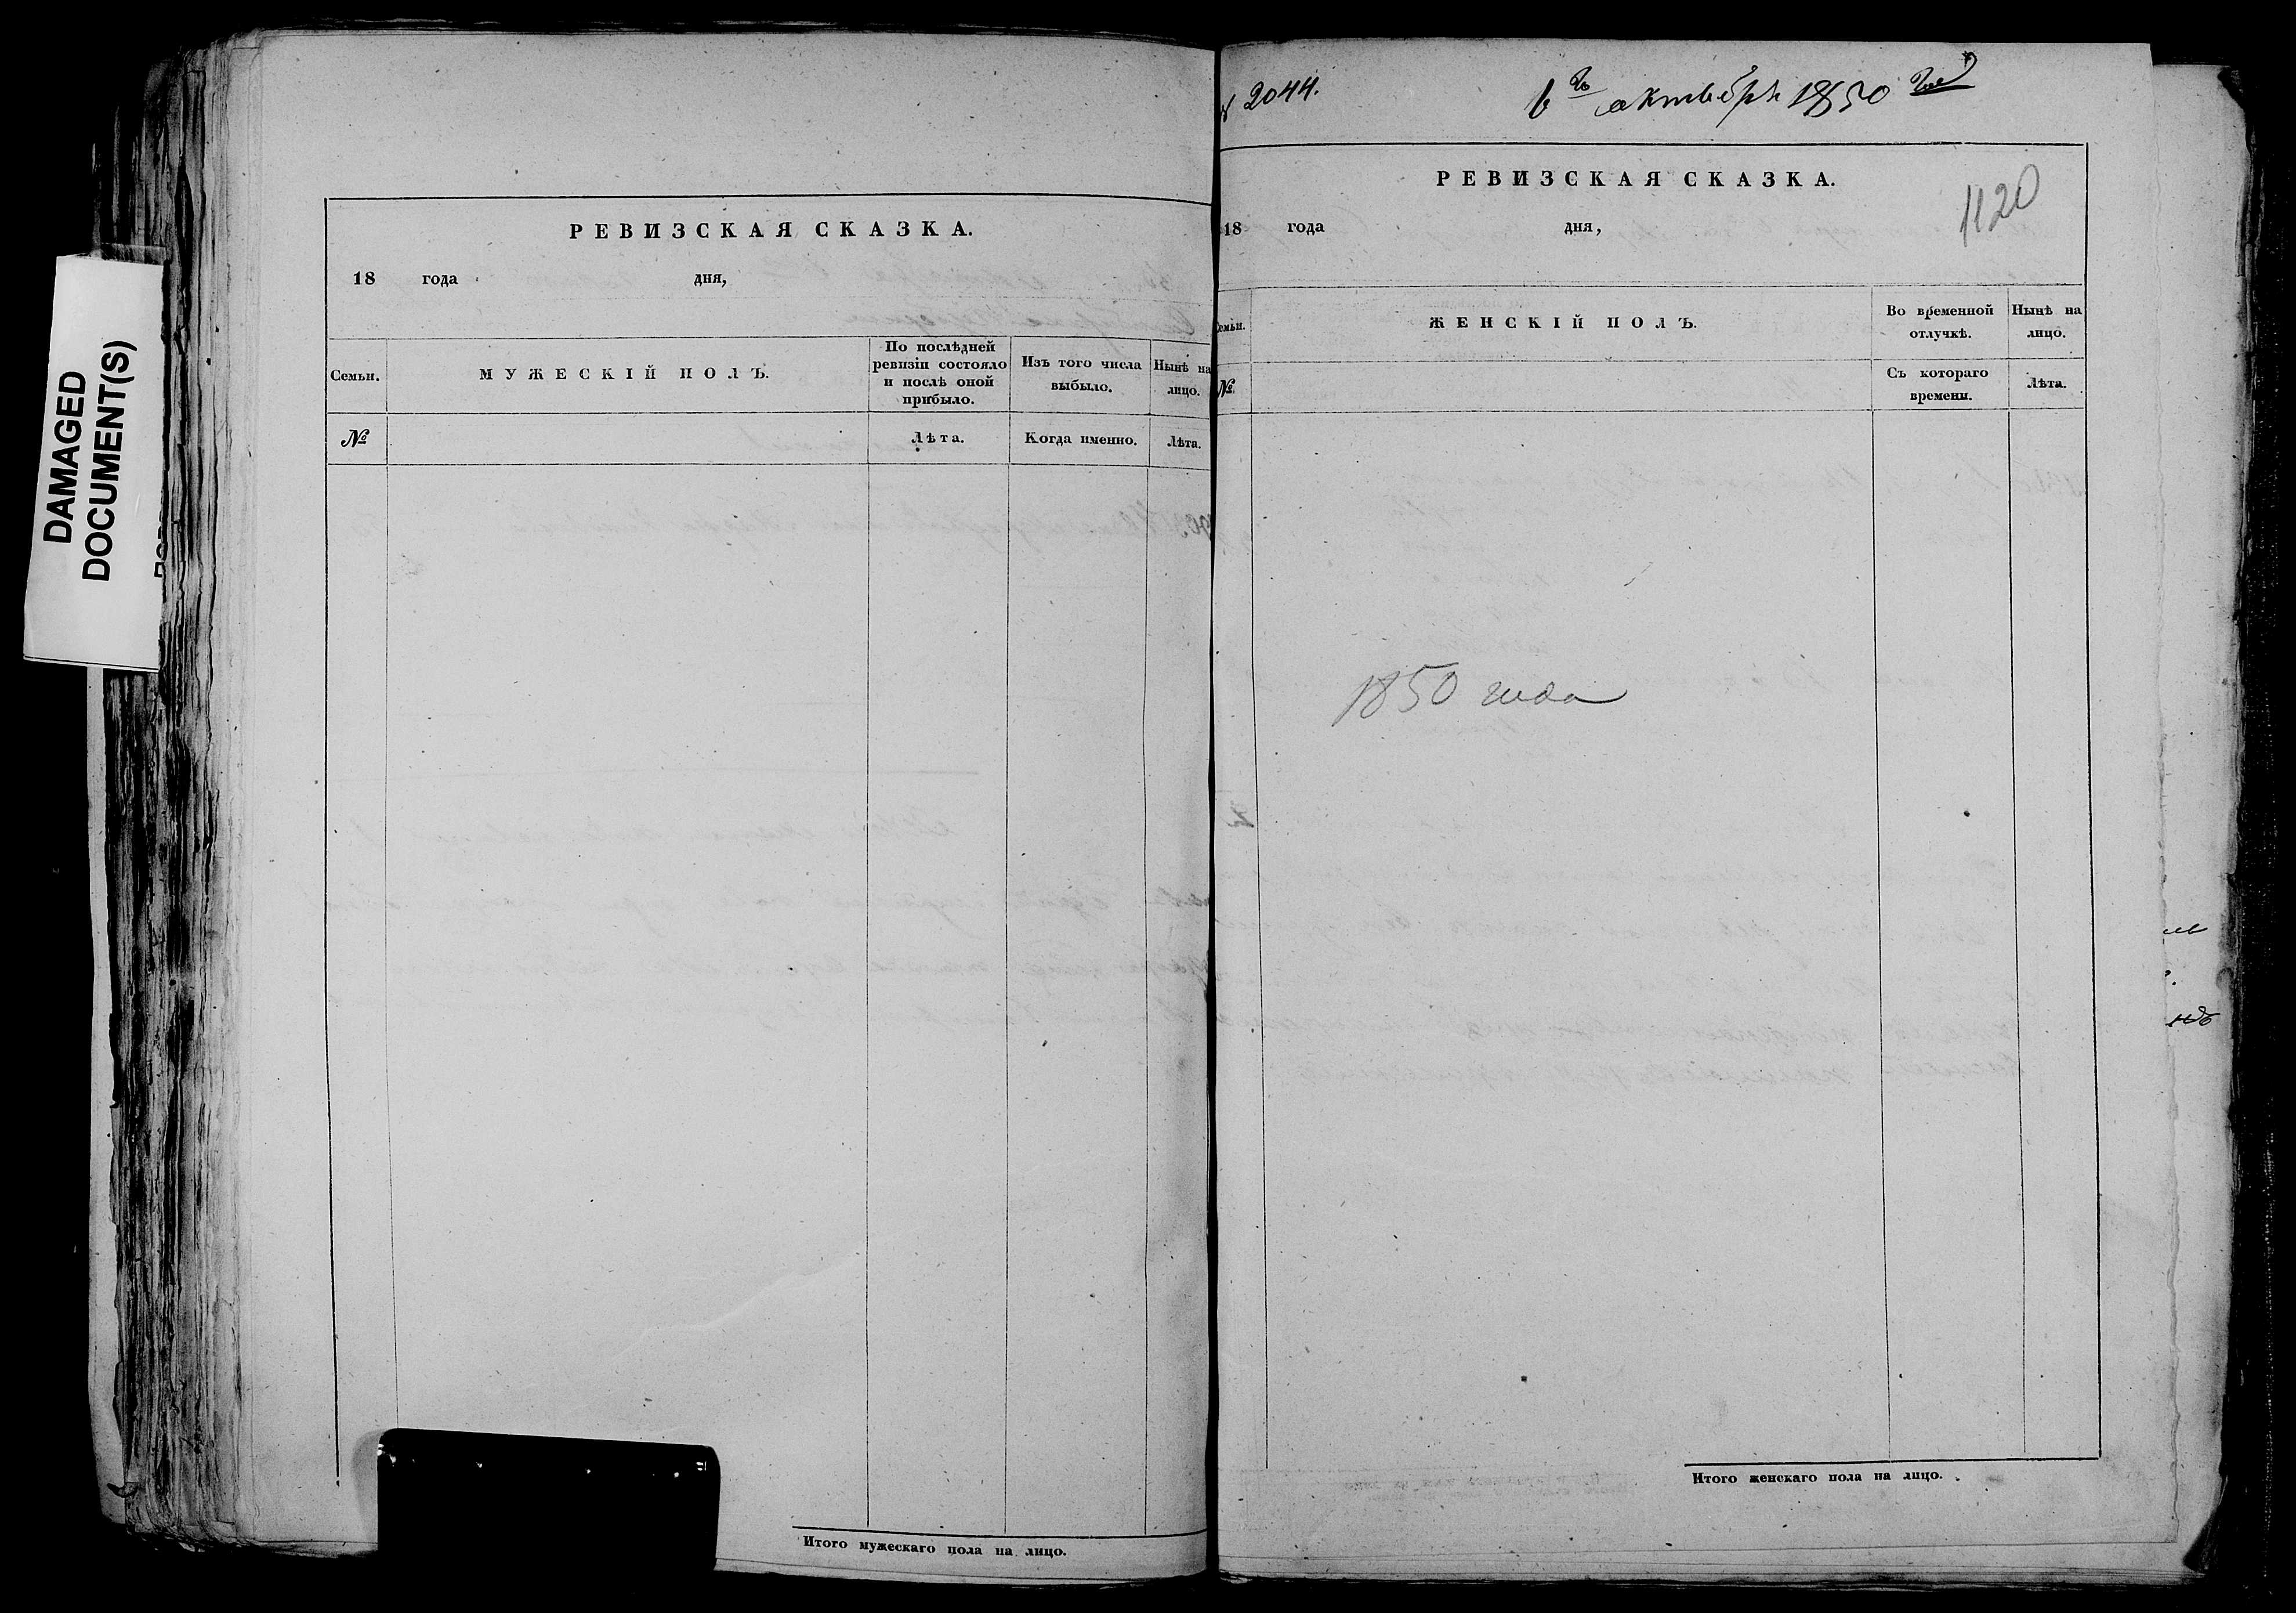 DAMAGED
DOCUMENT(S)
РЕВИЗСКАЯ СКАЗКА.
18 года дня,
Семьи.
МУЖЕСКІЙ ПОЛЪ.
По послѣдней
ревизіи состояло
и послѣ оной
прибыло.
Изъ того числа
выбыло.
Нынѣ на
лицо.
№
Лѣта.
Когда именно.
Лѣта.
Итого мужескаго пола на лицо.
2044.
6 октября 1850
РЕВИЗСКАЯ СКАЗКА.
1120
18 года дня,
Семьи.
ЖЕНСКІЙ ПОЛЪ.
Во временной
отлучкѣ.
Нынѣ на
лицо.
№
Съ котораго
времени.
Лѣта.
1850 года
Итого женскаго пола на лицо.